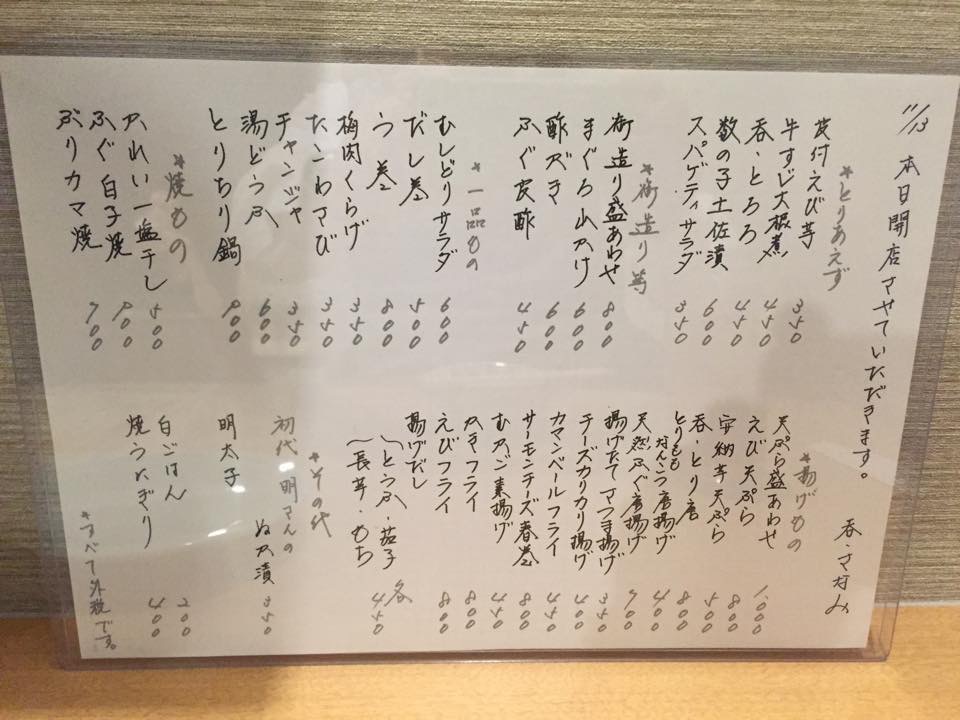 11/13 本日開店させていただきます。
呑・さなみ
*とりあえず
皮付えび芋 350
牛すじ大根煮 450
呑・とろろ 450
数の子土佐漬 600
スパゲティサラダ 350
*御造り等
御造り盛あわせ 800
まぐろ山かけ 600
酢がき 600
ふぐ皮酢 450
*一品もの
むしどりサラダ 600
だし巻 500
う巻 800
梅肉くらげ 350
たこわさび 350
チャンジャ 350
湯どうふ 600
とりちり鍋 900
*焼もの
カれい一塩干し 500
ふぐ白子焼 900
ぶりカマ焼 700
*揚げもの
天ぷら盛あわせ 1,000
えび天ぷら 800
安納芋天ぷら 500
呑・とり唐 800
とりもも なんこつ唐揚げ 400
天然ふぐ唐揚げ 900
揚げたてさつま揚げ 350
チーズカリカリ揚げ 400
カマンベールフライ 450
サーモンチーズ春巻 800
むかご素揚げ 450
かきフライ 800
えびフライ 800
揚げだし
〜とうふ・茄子
〜長芋・もち 各450
*その代
初代 明さんの
ぬか漬 350
明太子
白ごはん 200
焼うなぎり 400
*すべて外税です。